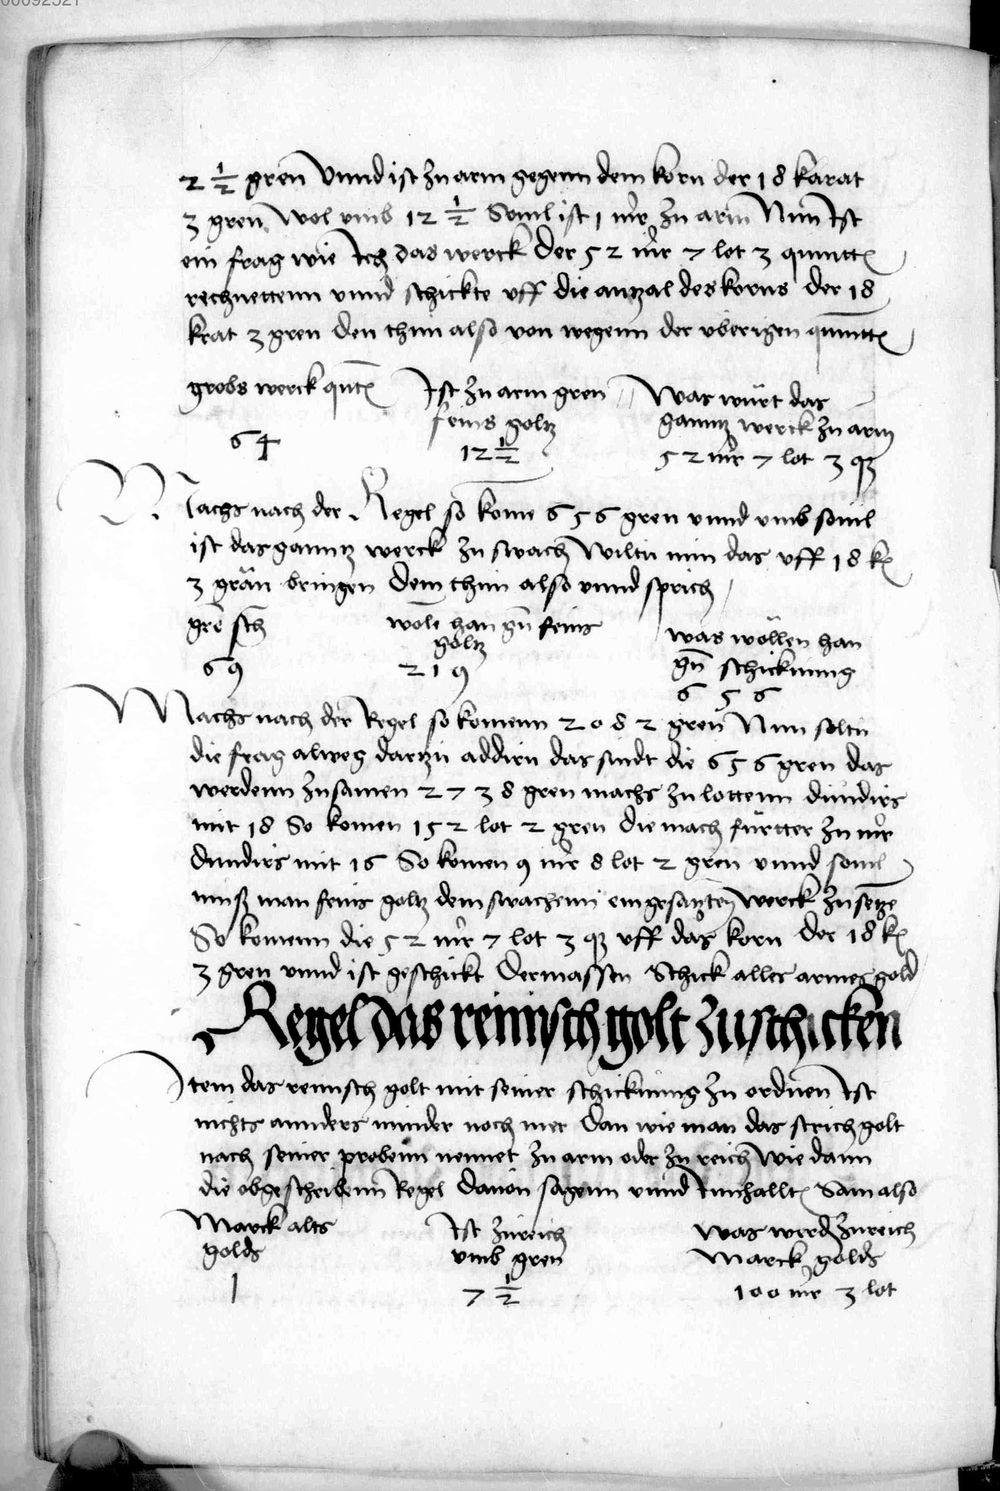 00092521
2 1/2 gren Vnnd ist zu arm gegenn dem korn der 18 karat
3 gren wol vmb 12 1/2 Souil ist 1 mr zu arm Nun Ist
ein frag wie Ich das werck der 52 mr 7 lot 3 quintt
rechnettenn vnnd schickte vff die antzal des korns der 18
krat 3 gren den thun also von wegenn der vberigen quintt
grobs werck qnt Ist zu arm gren Was würt das
feins goltz ganntz werck zu arm
64 12 1/2 52 mr 7 lot 3 q
Machs nach der Regel so kome 656 gren vnnd vmb souil
ist das ganntz werck zu swach Wiltu nun das vff 18 k
3 grän bringen Dem thun also vnnd sprich
gre sch wöle han gn feins was wöllen han
goltz gn schicknung
69 219 656
Machs nach der Regel so komenn 2082 gren Nun soltu
die frag alweg dartzu addirn das sindt die 656 gren das
werdenn zusamen 2738 gren machs zu lottenn diuidirs
mit 18 So komen 152 lot 2 gren die mach fürtter zu mr
diuidirs mit 16 So komen 9 mr 8 lot 2 gren vnnd souil
muß man feins goltz dem swachenn eingesatzten werck zusetze
So komenn die 52 mr 7 lot 3 q vff das korn der 18 k
3 gren vnnd ist geschickt Dermassen Schick alles armes gold
Regel das reinisch golt zuschicken
Item das rennsch golt mit seiner schicknung zu ordnen Ist
nichts annders minder noch mer Dan wie man das strich golt
nach seiner probenn nennet zu arm oder zu reich Wie dann
die obgeschribenn Regel dauon sagenn vnnd Innhallt Sam also
Marck alts Ist zureich Was wird zureich
golds vmb gren Marck golds
1 7 1/2 100 mr 3 lot